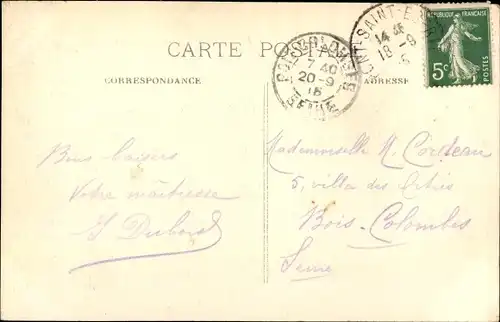 CARTE POSTALE
CORRESPONDANCE
ADRESSE
RÉPUBLIQUE FRANÇAISE
5c
POSTES
BOIS-COLOMBES
7 40
20-9
15
SEINE
SAINT-E
14 45
18-9
Bons baisers
Votre maîtresse
Dubois
Mademoiselle M. Cordeau
5, villa des
Bois-Colombes
Seine